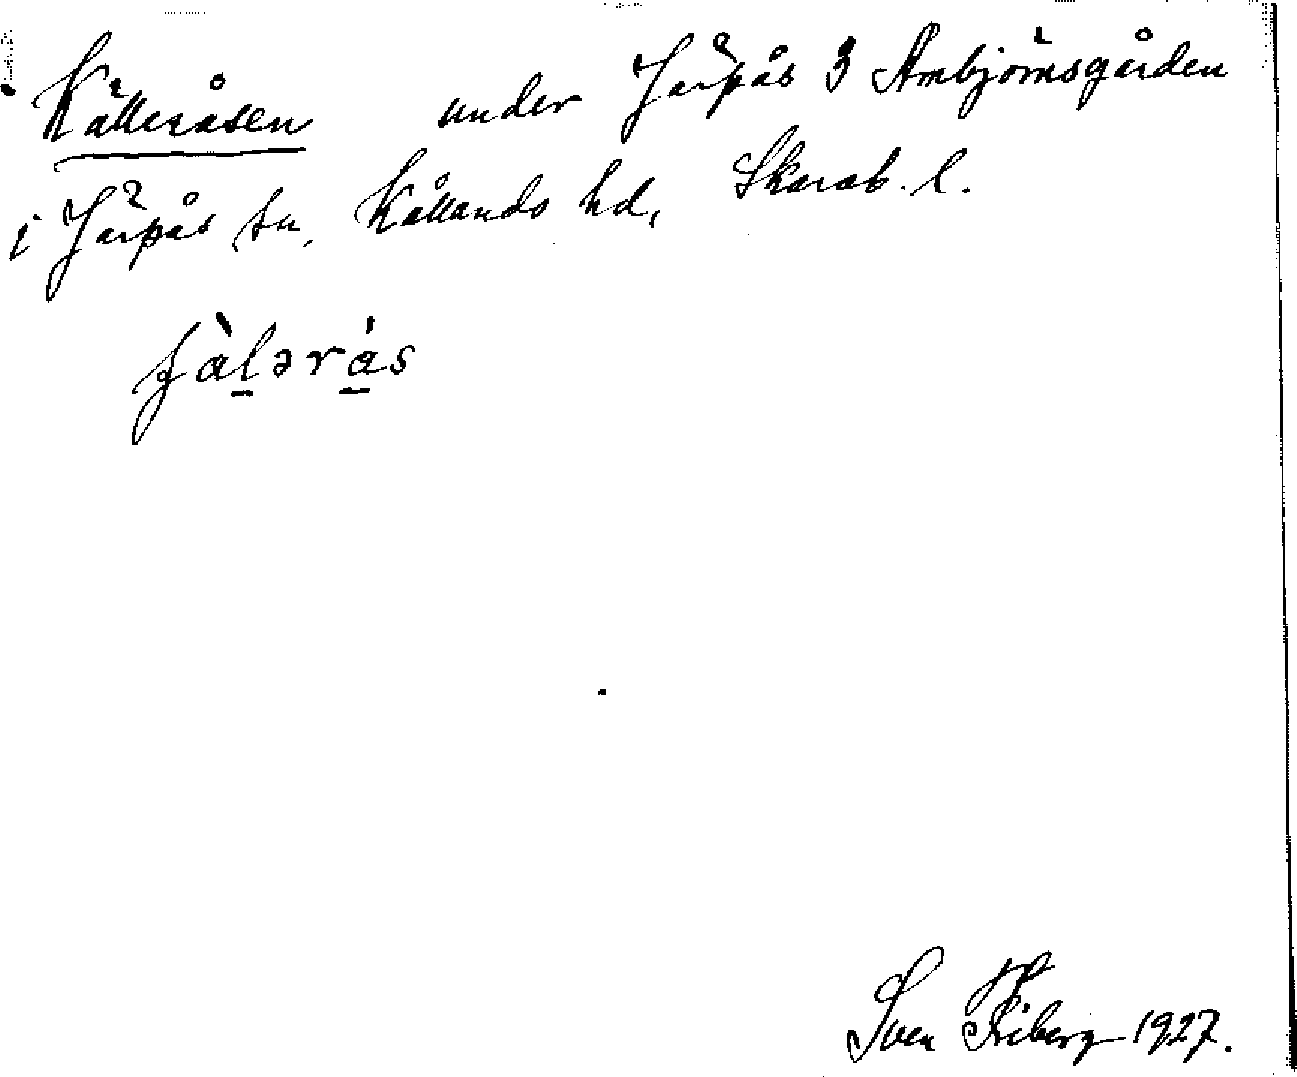 Källeråsen under Järpås 3 Ambjörnsgården
i Järpås sn, Kållands hd, Skarab. l.
Sven Friberg 1927.